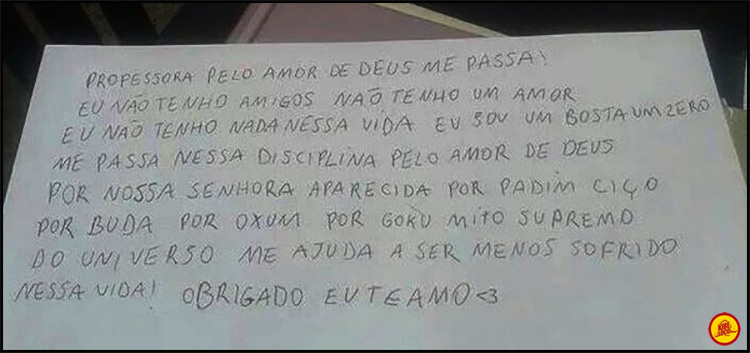 PROFESSORA PELO AMOR DE DEUS ME PASSA!
EU NÃO TENHO AMIGOS NÃO TENHO UM AMOR
EU NÃO TENHO NADA NESSA VIDA EU SOU UM BOSTA UM ZERO
ME PASSA NESSA DISCIPLINA PELO AMOR DE DEUS
POR NOSSA SENHORA APARECIDA POR PADIM CIÇO
POR BUDA POR OXUM POR GOKU MITO SUPREMO
DO UNIVERSO ME AJUDA A SER MENOS SOFRIDO
NESSA VIDA! OBRIGADO EU TE AMO <3